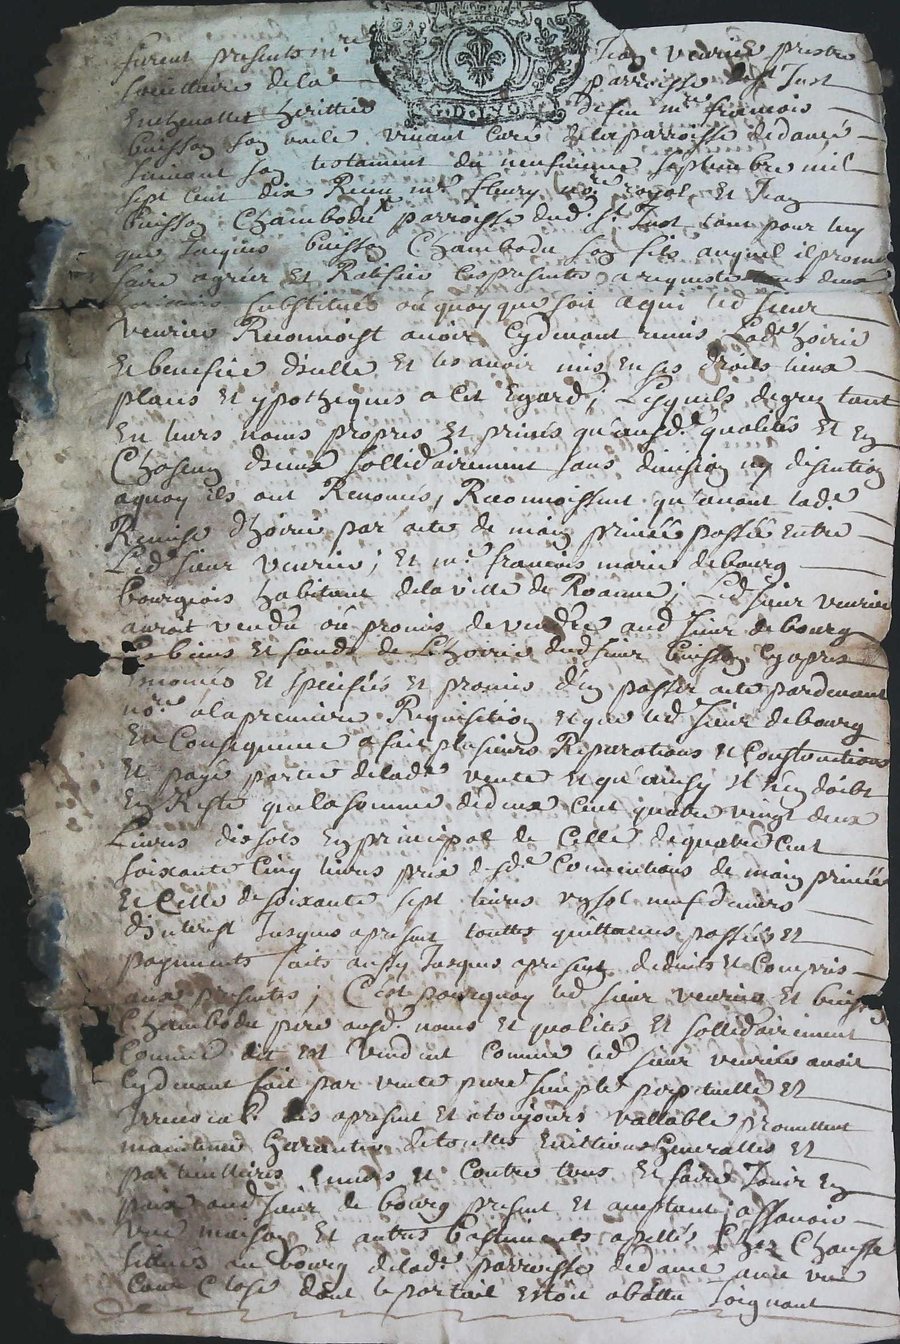 G · D · LYON
furent presents mre Jean Verrier prestre
societaire de la parroisse de St Just
En chevallet heritier de feu mre francois
buisson son oncle vivant curé de la parroisse de damé
suivant son testament du neufieme septembre mil
sept cent dix Reçu mre fleury nore royal Et Jean
buisson Chambodu parroisse dud. St Just tant pour luy
que Jacques buisson Chambodu son fils auquel il promet
faire agréer Et Ratifier les presentes a requeste
substitues ou quoy que soit a qui led sieur
Verrier Reconnoist avoir cydevant remis Lade hoirie
Et benefice d'icelle Et les avoir mis en ses droits lieux
places Et ypotheques a cet Egard, Lesquels de gré tant
En leurs noms propres Et privés qu'ausd. qualités Et En
Chascun d'eux sollidairement sans division ny discution
aquoy ils ont Renoncés, Reconnoissent qu'avant lade
Remise d'hoirie par acte de main privée passée entre
Led. sieur Verrier, Et mre francois marie debourg
bourgeois habitant de la ville de Roanne; Led sieur verrier
auroit vendu ou promis de vendre aud sieur debourg
Les biens et fonds de L'hoirie dud sieur buisson cyapres
només Et speciffiés Et promis d'en passer acte pardevant
nore a la premiere Requisition Et que led sieur debourg
En Consequence a fait plusieurs Reparations Et Constructions
Et payé partie de lade vente Et qu'ainsy il n'en doibt
En Reste que la somme de deux cent quatre vingt deux
Livres dix sols En principal de Celle de quatre Cent
soixante Cinq livres prix desde Conventions de main privée
Et Celle de soixante sept livres un sol neuf deniers
d'interest Jusques apresent touttes quittances passées Et
payements faits aussy Jusques apresent deduits Et Compris
aux presentes; C'est pourquoy led sieur verrier Et buisson
Chambodu pere ausd. noms Et qualités Et sollidairement
Comme dit est Vendent Comme led sieur verrier avoit
Cydevant fait par vente pure simple perpetuelle Et
Irrevocable des apresent Et atoujours vallable promettent
maintenir Garentir de touttes Evictions Generalles Et
particullieres Envers Et Contre tous Et faire Jouir En
paix aud sieur de bourg present Et aceptant, assavoir
Une maison Et autres bastiments apellés Chez Chausse
situés au bourg de lade parroisse de damé avec une
Cour Close dont le portail estoit abattu Joignant